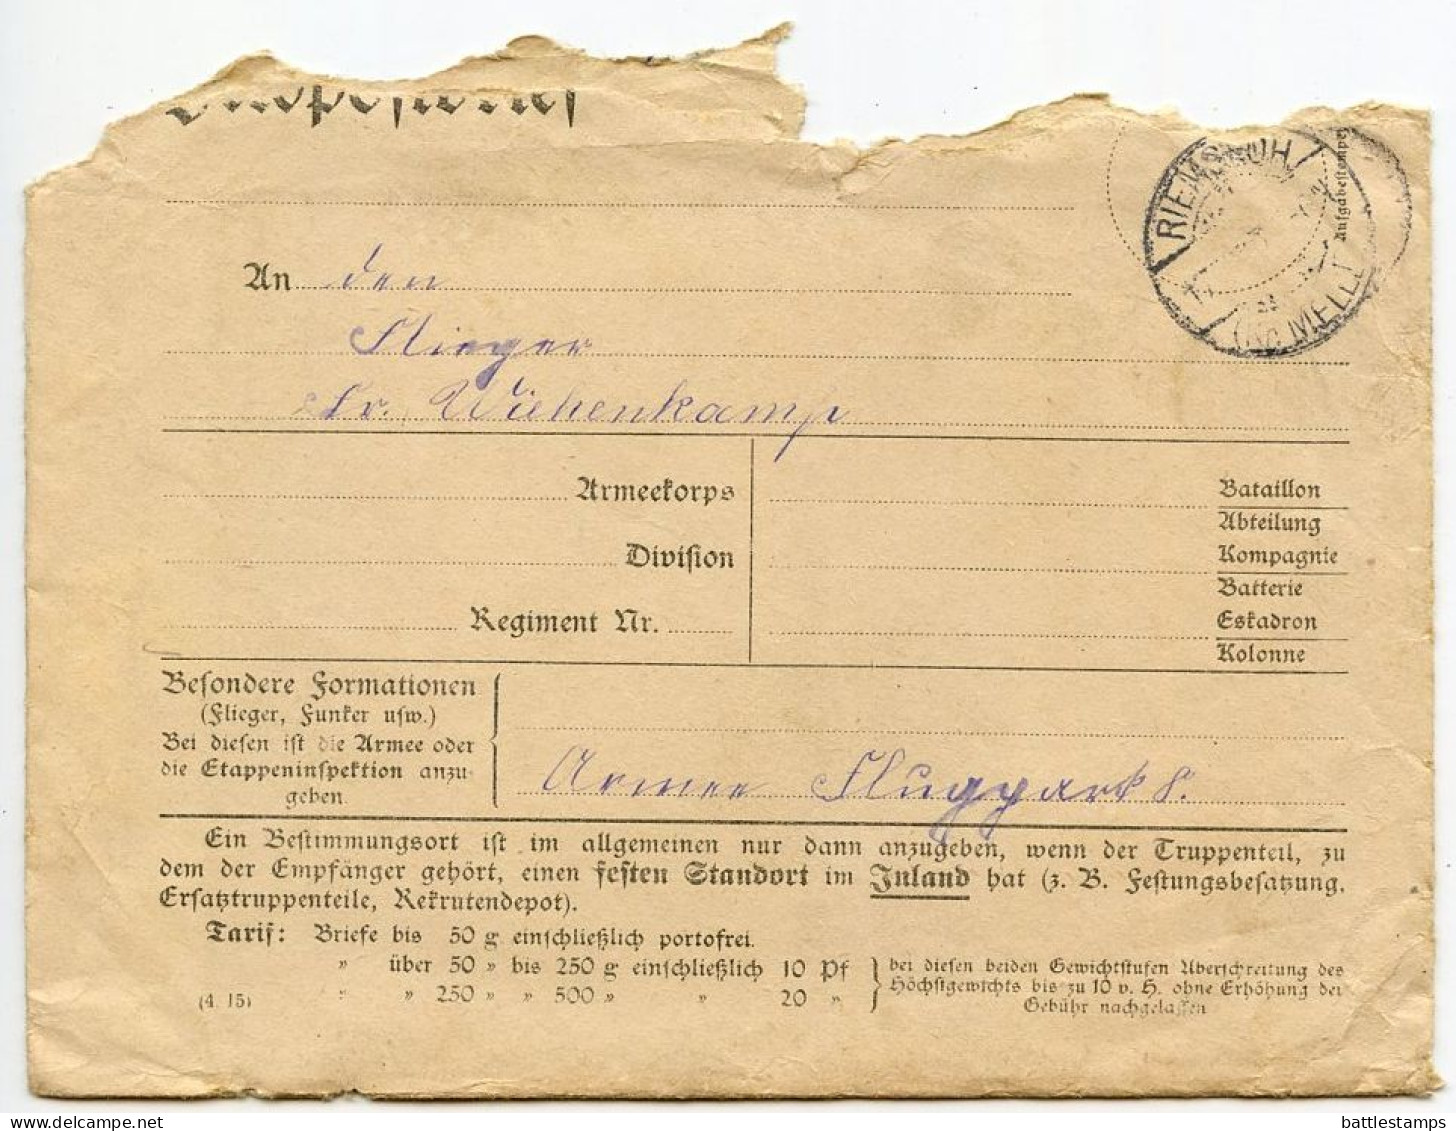 Feldpostbrief
An den
Flieger
Fr. Wiehenkamp
Armeekorps
Division
Regiment Nr.
Bataillon
Abteilung
Kompagnie
Batterie
Eskadron
Kolonne
Besondere Formationen
(Flieger, Funker usw.)
Bei diesen ist die Armee oder
die Etappeninspektion anzu-
geben.
Armee Flugpark 8.
Ein Bestimmungsort ist im allgemeinen nur dann anzugeben, wenn der Truppenteil, zu
dem der Empfänger gehört, einen festen Standort im Inland hat (z. B. Festungsbesatzung,
Ersatztruppenteile, Rekrutendepot).
Tarif: Briefe bis 50 g einschließlich portofrei.
" über 50 " bis 250 g einschließlich 10 Pf
" " 250 " " 500 " " 20 "
bei diesen beiden Gewichtstufen Überschreitung des
Höchstgewichts bis zu 10 v. H. ohne Erhöhung der
Gebühr nachgelassen
(4. 15)
Aufgabestempel
RIEMSLOH
(Kr. MELLE)
delcampe.net
battlestamps